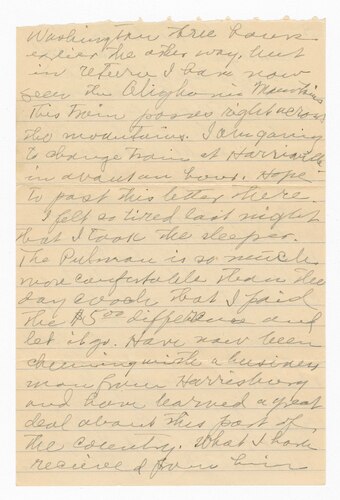 Washington three hours
earlier the other way, but
in return I have now
seen the Aleghonie Mountains
This train passes right across
the mountains. I am going
to change train at Harris
in about an hour. Hope
to post this letter there.
I felt so tired last night
that I took the sleeper.
The Pulman is so much
more comfortable than the
day coach that I paid
the $5.00 difference and
let it go. Have now been
chewing with a business
man from Harrisburg
and have learned a great
deal about this part of
the country. What I have
recieved from him